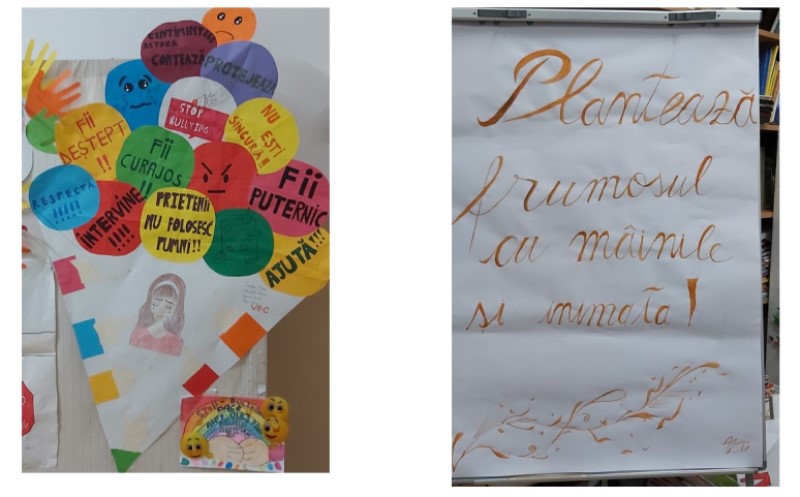 SENTIMENTELE
ALTORA
CONTEAZĂ
PROTEJEAZĂ
STOP
BULLYING
NU
EȘTI
SINGURĂ!!
Fii
DEȘTEPT
!!
Fii
CURAJOS
!!
Fii
PUTERNIC
RESPECTĂ
!!!!!
INTERVINE
!!!!
PRIETENII
NU FOLOSESC
PUMNI!!
AJUTĂ!!!
STOP
Plantează
frumosul
cu mâinile
și inimata!